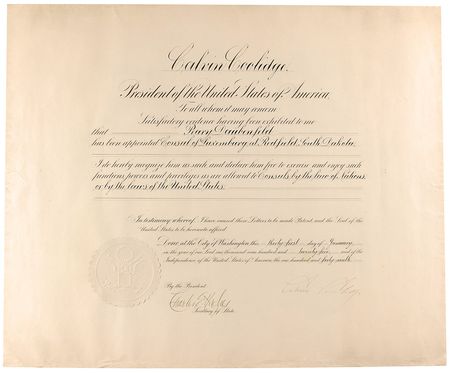 Calvin Coolidge,
President of the United States of America,
To all whom it may concern
Satisfactory evidence having been exhibited to me
that Daubenfeld
has been appointed Consul of Luxemburg, at Redfield, South Dakota,
I do hereby recognize him as such and declare him free to exercise and enjoy such
functions, powers and privileges as are allowed to Consuls by the law of Nations,
or by the laws of the United States.
In testimony whereof, I have caused these Letters to be made Patent, and the Seal of the
United States to be hereunto affixed.
Done at the City of Washington this thirty-first day of January,
in the year of our Lord one thousand nine hundred and twenty-five and of the
Independence of the United States of America, the one hundred and forty-ninth.
By the President
Charles E Hughes
Secretary of State.
Calvin Coolidge